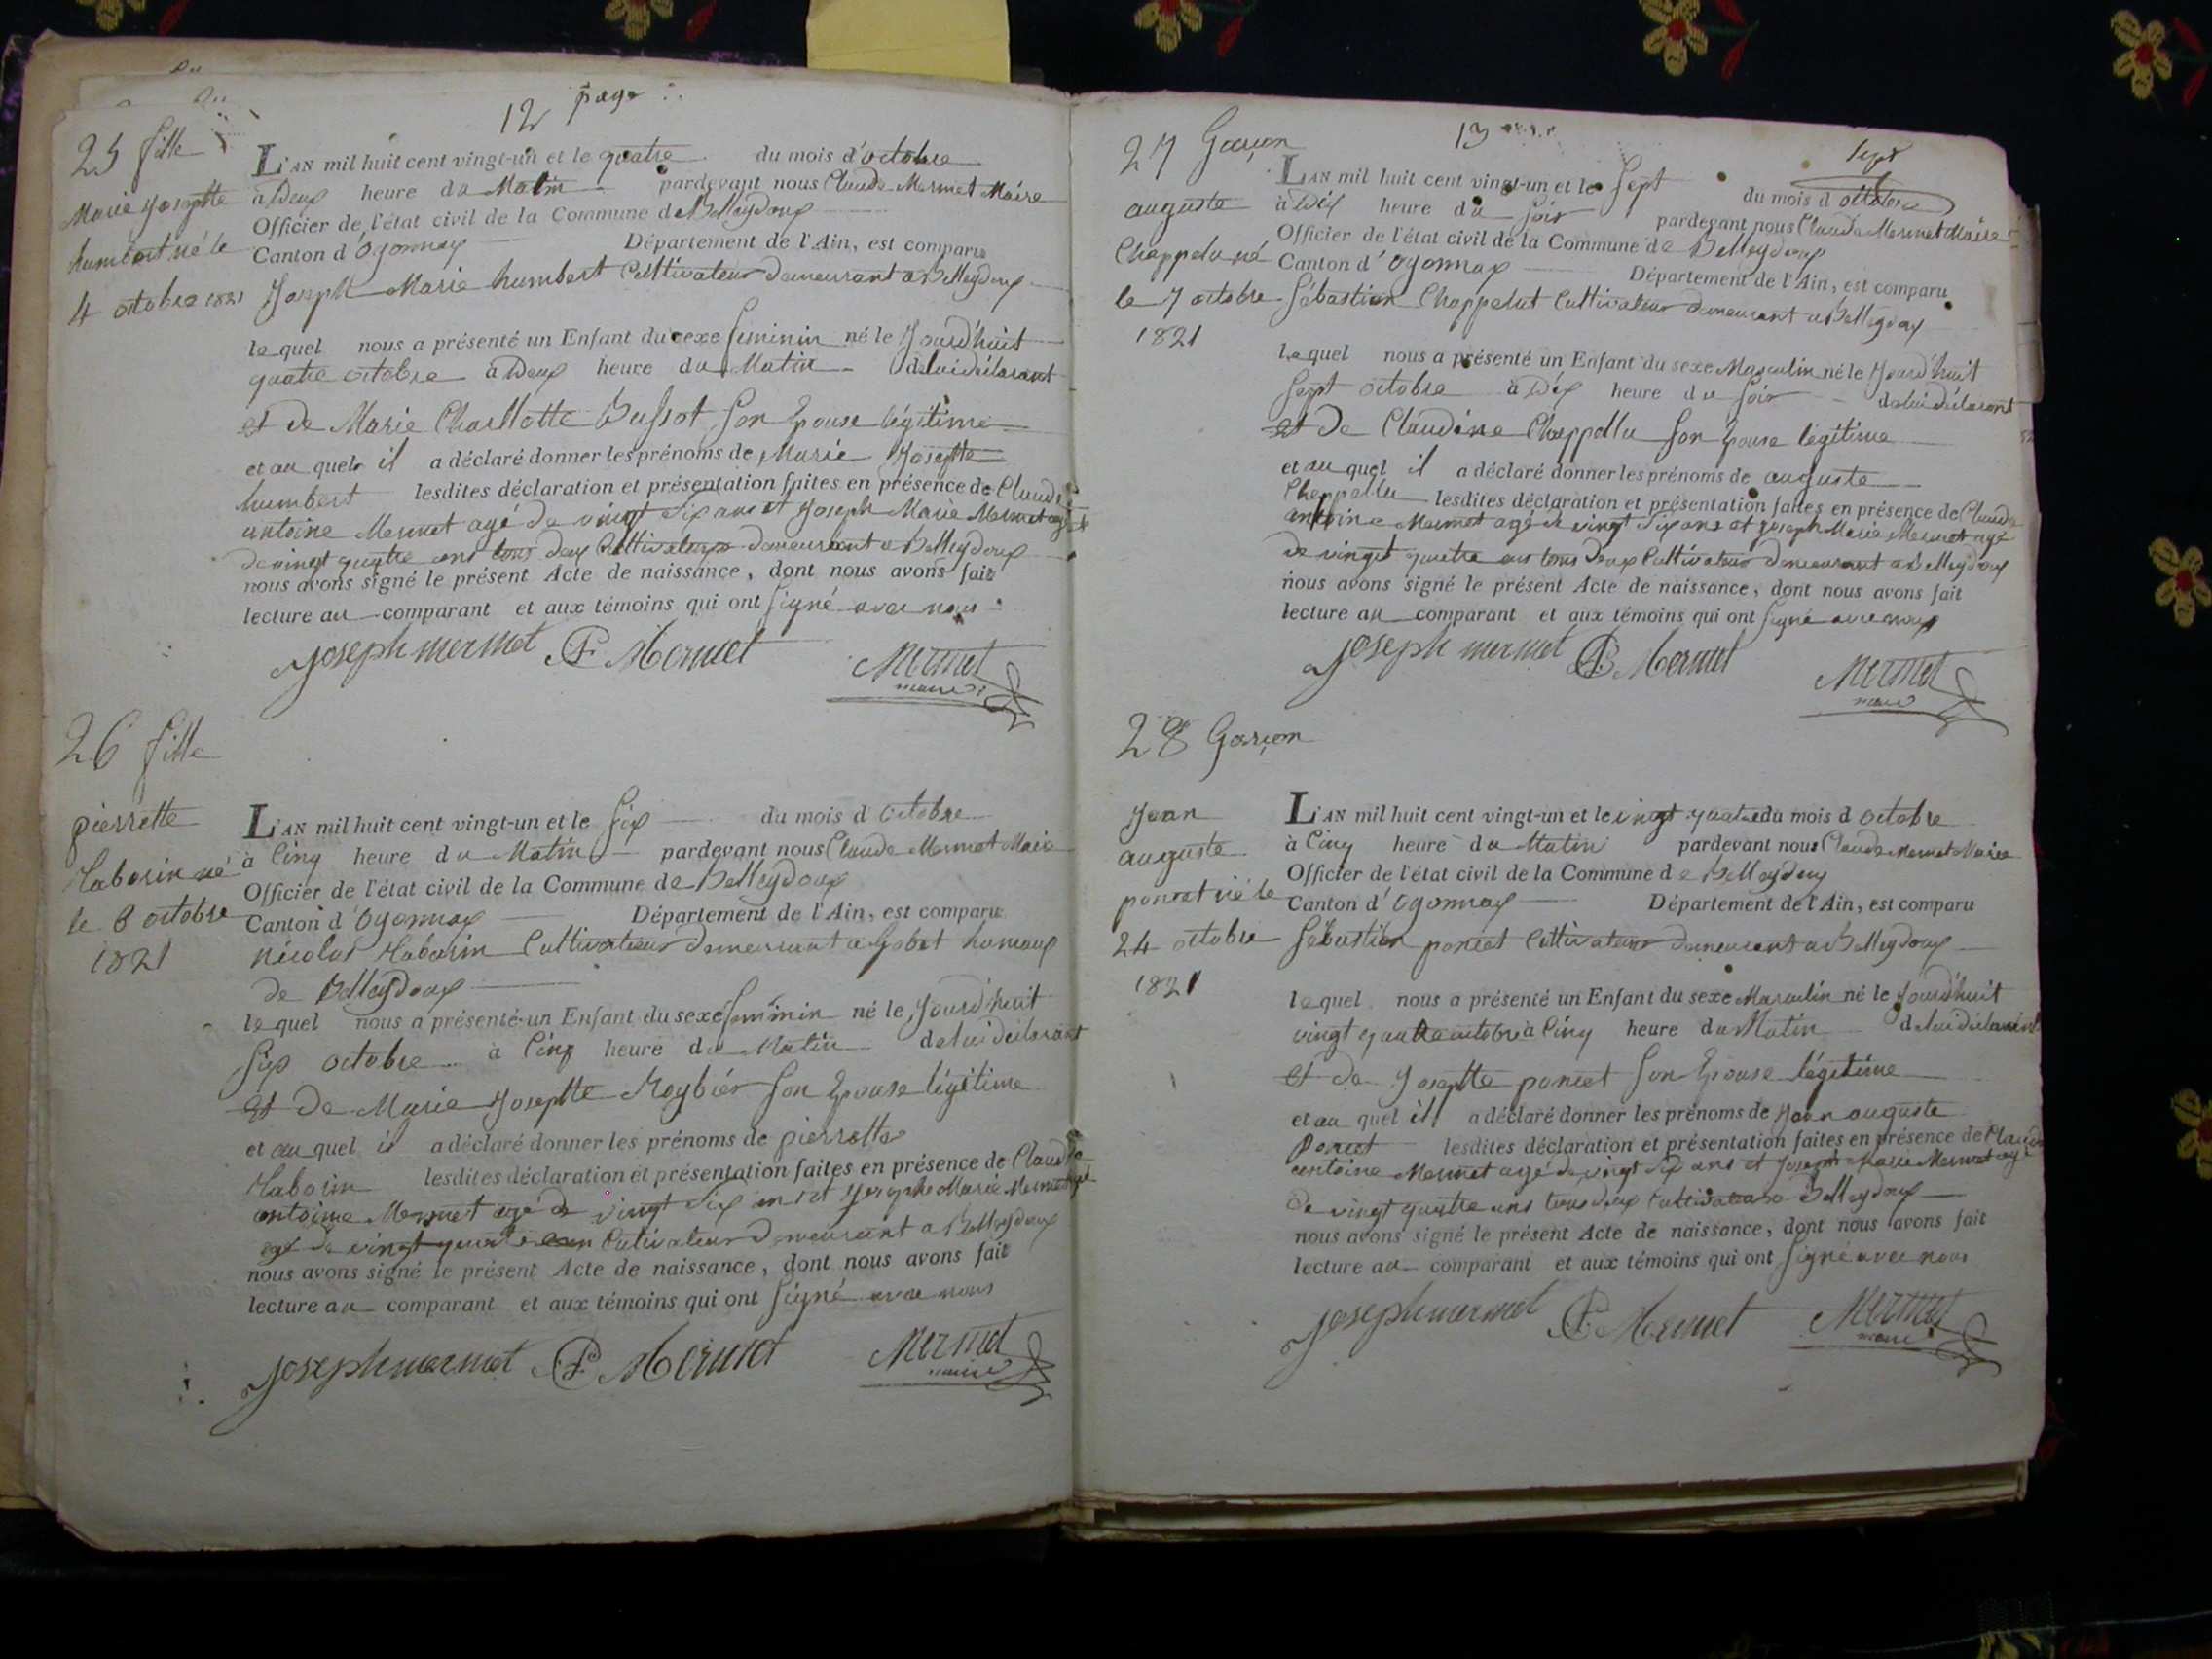 12 page
25 fille
Marie Josephte
humbert né le
4 octobre 1821
L'AN mil huit cent vingt-un et le quatre du mois d'octobre
à Deux heure du Matin pardevant nous Claude Mermet Maire
Officier de l'état civil de la Commune de Belleydoux
Canton d'Oyonnax Département de l'Ain, est comparu
Joseph Marie humbert Cultivateur demeurant a Belleydoux
lequel nous a présenté un Enfant du sexe feminin né le Jourd'huit
quatre octobre à Deux heure du Matin de lui déclarant
et de Marie Charllotte Bussot son Epouse légitime
et au quel il a déclaré donner les prénoms de Marie Josephte
humbert lesdites déclaration et présentation faites en présence de Claude
antoine Mermet agé de vingt six ans et Joseph Marie Mermet agé
de vingt quatre ans tous deux Cultivateurs demeurant a Belleydoux
nous avons signé le présent Acte de naissance, dont nous avons fait
lecture au comparant et aux témoins qui ont signé avec nous
Joseph mermet Mermet Mermet
maire
26 fille
pierrette
né
le 6 octobre
1821
L'AN mil huit cent vingt-un et le six du mois d octobre
à Cinq heure du Matin pardevant nous Claude Mermet Maire
Officier de l'état civil de la Commune de Belleydoux
Canton d'Oyonnax Département de l'Ain, est comparu
nicolas Cultivateur demeurant a Gobet hamaux
de Belleydoux
lequel nous a présenté un Enfant du sexe feminin né le Jourd'huit
six octobre à Cinq heure du Matin de lui déclarant
et de Marie Josephte Roybier son Epouse légitime
et au quel il a déclaré donner les prénoms de pierrette
lesdites déclaration et présentation faites en présence de Claude
antoine Mermet agé de vingt six an et Josephe Marie Mermet agé
agé de vingt quatre Cultivateur demeurant a Belleydoux
nous avons signé le présent Acte de naissance, dont nous avons fait
lecture au comparant et aux témoins qui ont signé avec nous
Joseph mermet Mermet Mermet
maire
13
27 Garçon
auguste
Chappelu né
le 7 octobre
1821
sept
L'AN mil huit cent vingt-un et le sept du mois d octobre
à Dix heure du soir pardevant nous Claude Mermet Maire
Officier de l'état civil de la Commune de Belleydoux
Canton d'Oyonnax Département de l'Ain, est comparu
Sébastien Chappelut Cultivateur demeurant a Belleydoux
lequel nous a présenté un Enfant du sexe Masculin né le Jourd'huit
sept octobre à Dix heure du soir de lui déclarant
et de Claudine Chappellu son Epouse légitime
et au quel il a déclaré donner les prénoms de auguste
Chappellu lesdites déclaration et présentation faites en présence de Claude
antoine Mermet agé de vingt six ans et Joseph Marie Mermet agé
de vingt quatre ans tous deux Cultivateur demeurant a Belleydoux
nous avons signé le présent Acte de naissance, dont nous avons fait
lecture au comparant et aux témoins qui ont signé avec nous
Joseph mermet Mermet Mermet
maire
28 Garçon
Jean
auguste
poncet né le
24 octobre
1821
L'AN mil huit cent vingt-un et le vingt quatre du mois d octobre
à Cinq heure du Matin pardevant nous Claude Mermet Maire
Officier de l'état civil de la Commune de Belleydoux
Canton d'Oyonnax Département de l'Ain, est comparu
Sébastien poncet Cultivateur demeurant a Belleydoux
lequel nous a présenté un Enfant du sexe Masculin né le Jourd'huit
vingt quatre octobre à Cinq heure du Matin de lui déclarant
et de Josephte poncet son Epouse légitime
et au quel il a déclaré donner les prénoms de Jean auguste
Poncet lesdites déclaration et présentation faites en présence de Claude
antoine Mermet agé de vingt six ans et Joseph Marie Mermet agé
de vingt quatre ans tous deux Cultivateur a Belleydoux
nous avons signé le présent Acte de naissance, dont nous avons fait
lecture au comparant et aux témoins qui ont signé avec nous
Joseph mermet Mermet Mermet
maire